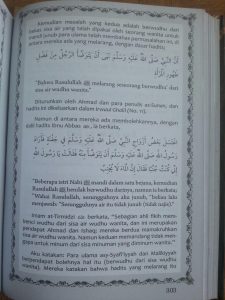 Kemudian masalah yang kedua adalah berwudhu dari
bekas sisa air yang telah dipakai oleh seorang wanita untuk
mandi junub para ulama telah membahas permasalahan ini, di
antara mereka ada yang melarang, dengan dasar hadits:
أَنَّ النَّبِيَّ صَلَّى اللَّهُ عَلَيْهِ وَسَلَّمَ نَهَى أَنْ يَتَوَضَّأَ الرَّجُلُ مِنْ فَضْلِ
طَهُورِ الْمَرْأَةِ
"Bahwa Rasulullah ﷺ melarang seseorang berwudhu' dari
sisa air wudhu wanita."
Diturunkan oleh Ahmad dan para penulis as-Sunan, dan
hadits ini dikeluarkan dalam Irwaul Ghalil (No. 11).
Dan di antara mereka ada membolehkannya, dengan
dalil hadits Ibnu Abbas, ia berkata,
"Beberapa istri Nabi ﷺ mandi dalam satu bejana, kemudian
Rasulullah ﷺ hendak berwudhu darinya, namun ia berkata;
"Wahai Rasulullah, sesungguhnya aku junub," beliau lalu
menjawab: "Sesungguhnya air itu tidak junub (tidak najis)"
Imam at-Tirmidzi berkata, "Sebagian ahli fikih mem-
benci wudhu dari sisa air wudhu wanita, dan ini merupakan
pendapat Ahmad dan Ishaq; mereka berdua memakruhkan
sisa air wudhu wanita. Namun keduanya memandang tidak men-
gapa untuk minum dari sisa minuman yang diminum wanita."
Aku katakan: Para ulama asy-Syafi'iyyah dan Malikiyyah
berpendapat bolehnya hal itu (berwudhu dari sisa wudhu
wanita). Mereka katakan bahwa hadits yang melarang itu
303